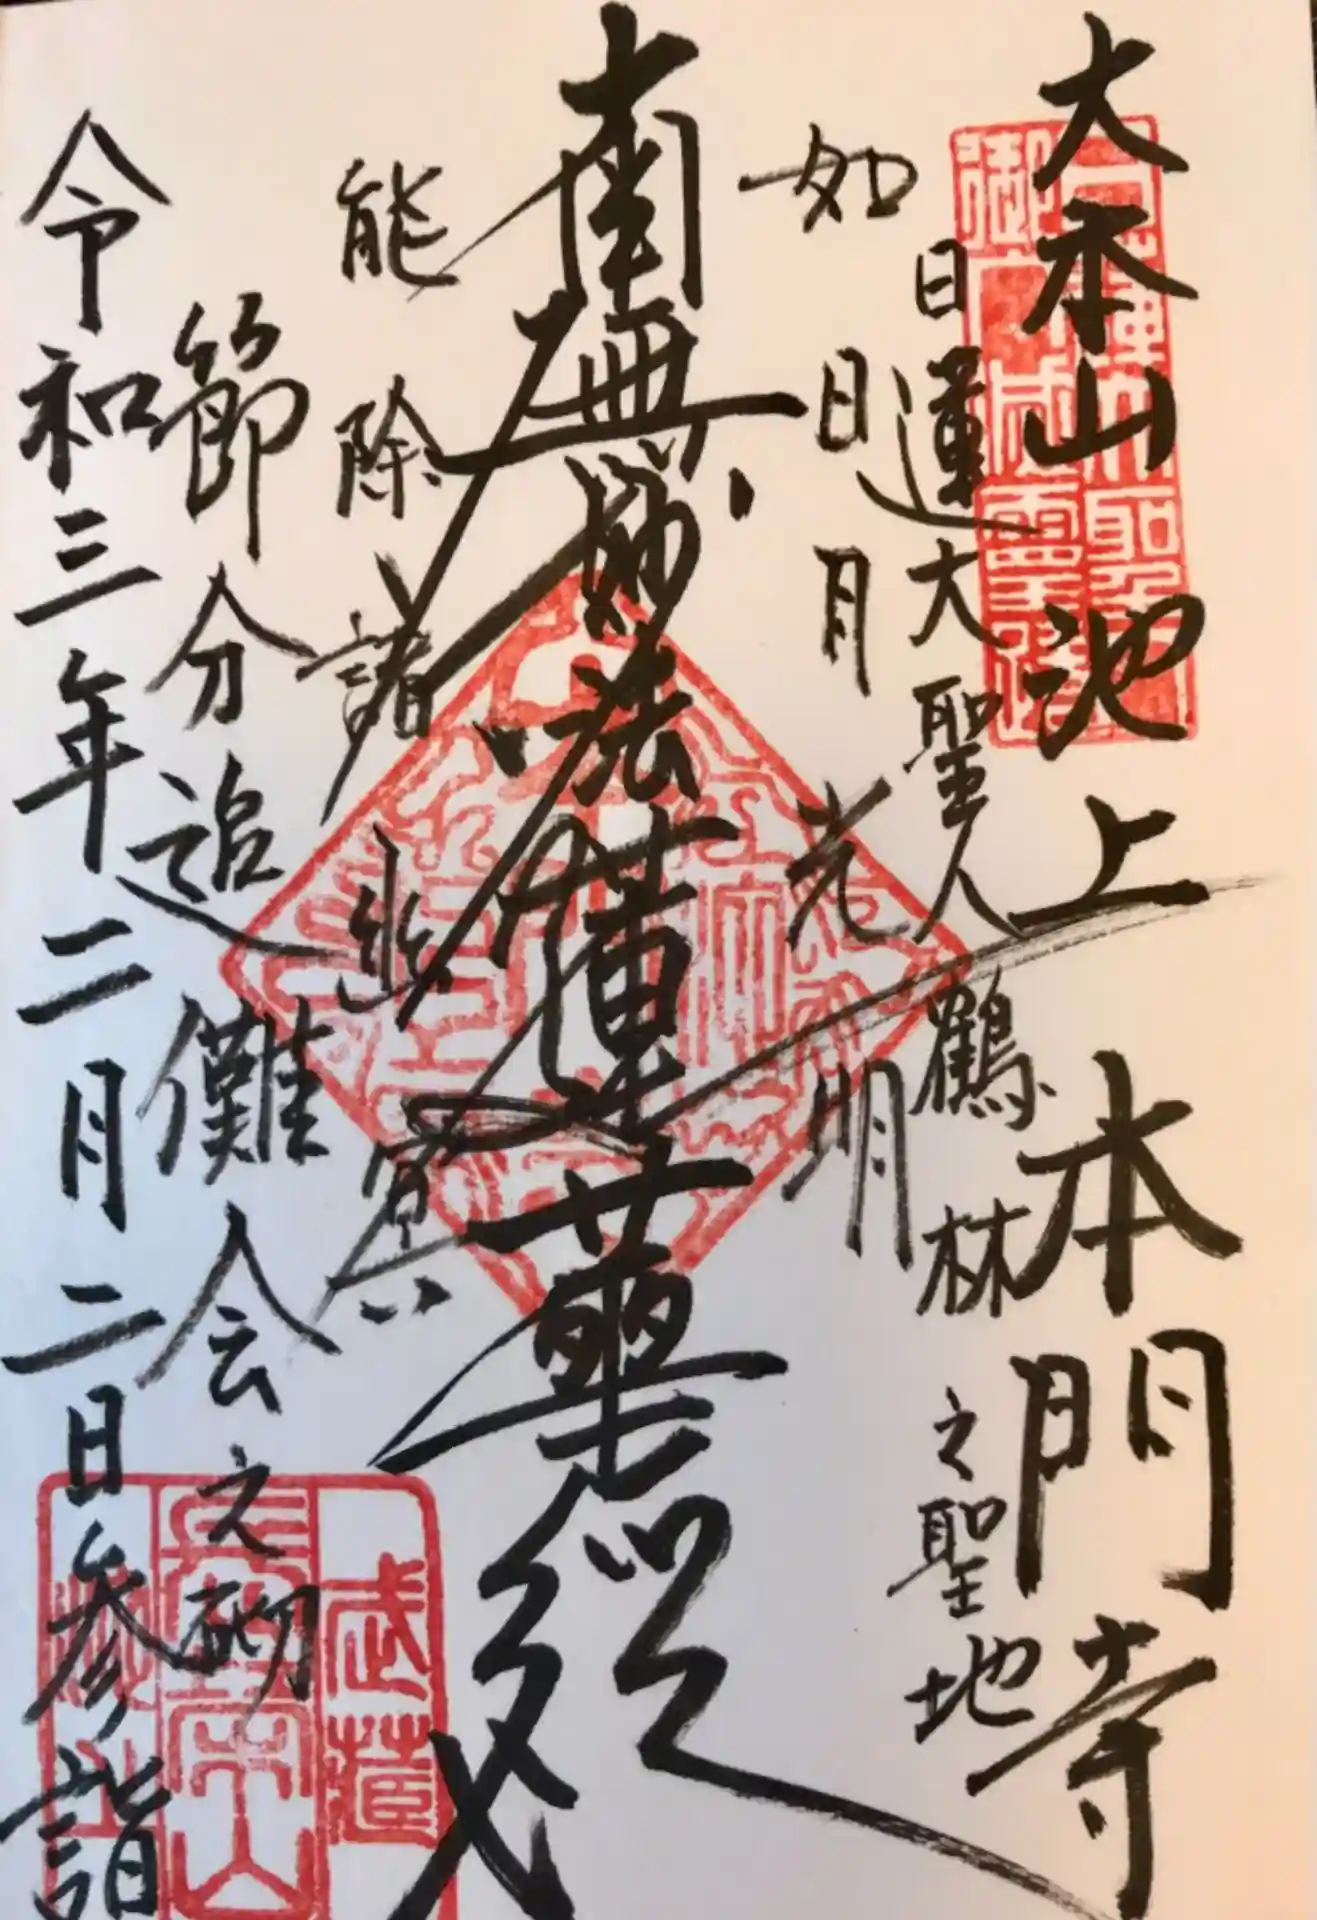 大本山池上本門寺
日蓮大聖人鶴林之聖地
如日月光明
南無妙法蓮華経
能除諸幽冥
節分追儺会之砌
令和三年二月二日参詣
武蔵